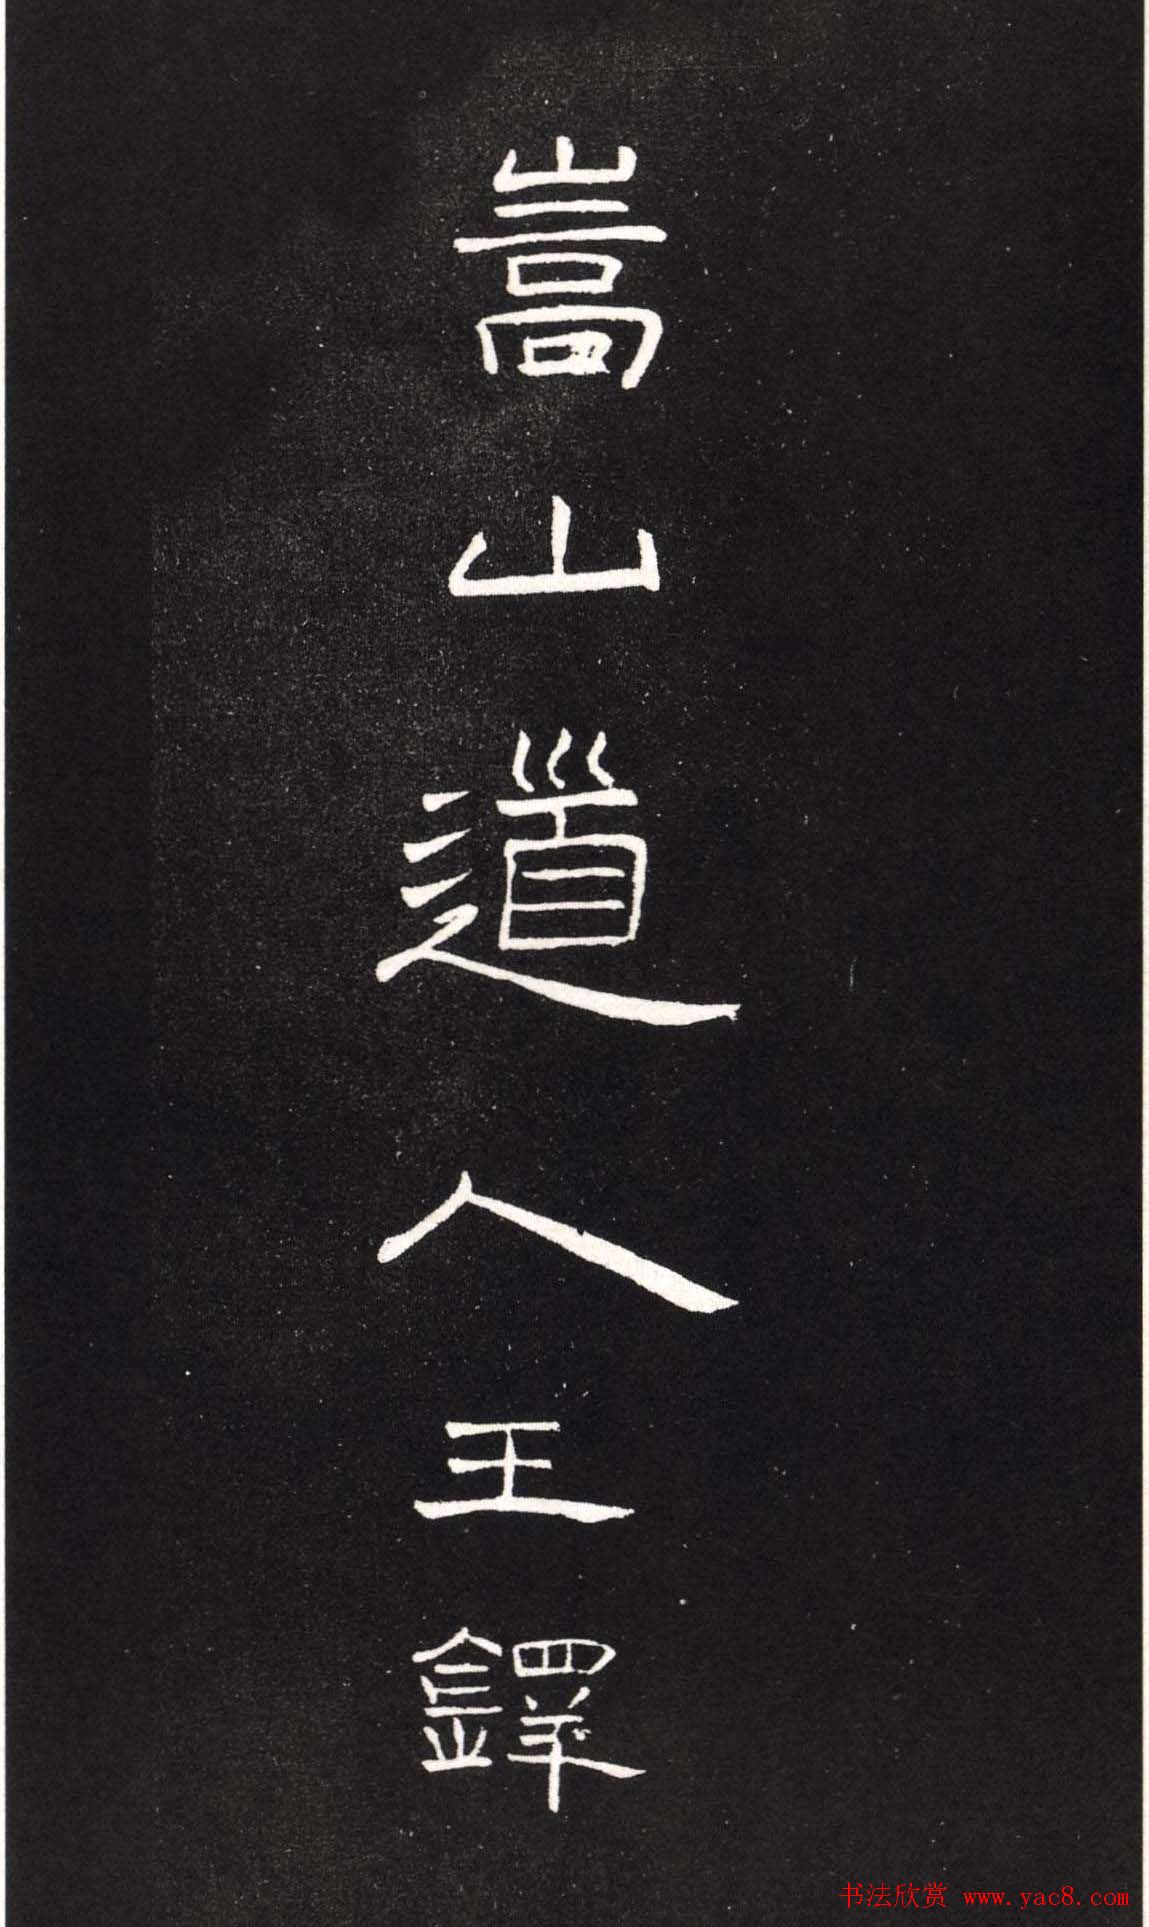 嵩山道人王鐸
书法欣赏 www.yac8.com